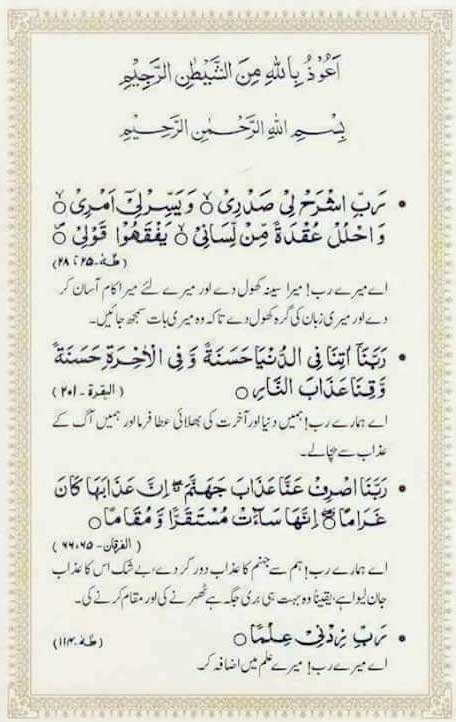 اَعُوْذُ بِاللّٰهِ مِنَ الشَّيْطٰنِ الرَّجِيْمِ
بِسْمِ اللّٰهِ الرَّحْمٰنِ الرَّحِيْمِ
• رَبِّ اشْرَحْ لِىْ صَدْرِىْ ۙ وَيَسِّرْلِىْٓ اَمْرِىْ ۙ
وَاحْلُلْ عُقْدَةً مِّنْ لِّسَانِىْ ۙ يَفْقَهُوْا قَوْلِىْ ۪
(طٰهٰ-۲۵ تا ۲۸)
اے میرے رب! میرا سینہ کھول دے اور میرے لئے میرا کام آسان کر
دے اور میری زبان کی گرہ کھول دے تاکہ وہ میری بات سمجھ جائیں۔
• رَبَّنَآ اٰتِنَا فِى الدُّنْيَا حَسَنَةً وَّ فِى الْاٰخِرَةِ حَسَنَةً
وَّقِنَا عَذَابَ النَّارِ ○ (البقرة - ۲۰۱)
اے ہمارے رب! ہمیں دنیا اور آخرت کی بھلائی عطا فرما اور ہمیں آگ کے
عذاب سے بچا لے۔
• رَبَّنَا اصْرِفْ عَنَّا عَذَابَ جَهَنَّمَ ۖ اِنَّ عَذَابَهَا كَانَ
غَرَامًا ۖ اِنَّهَا سَآءَتْ مُسْتَقَرًّا وَّ مُقَامًا ○
(الفرقان - ۶۵،۶۶)
اے ہمارے رب! ہم سے جہنم کا عذاب دور کر دے، بے شک اس کا عذاب
جان لیوا ہے یقیناً وہ بہت ہی بری جگہ ہے ٹھہرنے کی اور مقام کرنے کی۔
• رَبِّ زِدْنِىْ عِلْمًا ○ (طٰهٰ:۱۱۴)
اے میرے رب! میرے علم میں اضافہ کر۔